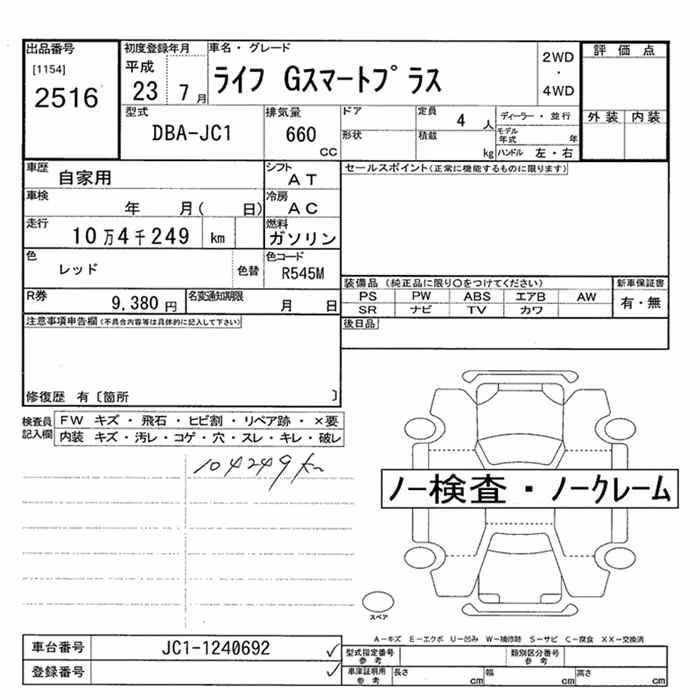 出品番号 初度登録年月 車名・グレード 2WD ・ 4WD 評価点
[1154] 2516 平成 23 7月 ライフ Gスマートプラス
外装 内装
型式 排気量 ドア 定員 4人 ディーラー・並行
DBA-JC1 660 CC 形状 積載 kg モデル年式 年
ハンドル 左・右
車歴 自家用 シフト AT セールスポイント(正常に機能するものに限ります)
車検 年 月( 日) 冷房 AC
走行 10万4千249 km 燃料 ガソリン
色 レッド 色替 色コード R545M
装備品 (純正品に限り〇をつけてください) 新車保証書
PS PW ABS エアB AW 有・無
SR ナビ TV カワ
R券 9,380円 名変通知期限 月 日
後日品
注意事項申告欄(不具合内容等は具体的に記入して下さい)
修復歴 有〔箇所 〕
検査員記入欄 FW キズ・飛石・ヒビ割・リペア跡・×要
内装 キズ・汚レ・コゲ・穴・スレ・キレ・破レ
104249km
ノー検査・ノークレーム
スペア
A-キズ E-エクボ U-凹み W-補修跡 S-サビ C-腐食 XX-交換済
車台番号 JC1-1240692 ✓ 型式指定番号参考 類別区分番号参考
登録番号 ✓ 車庫証明用参考 長さ cm 幅 cm 高さ cm